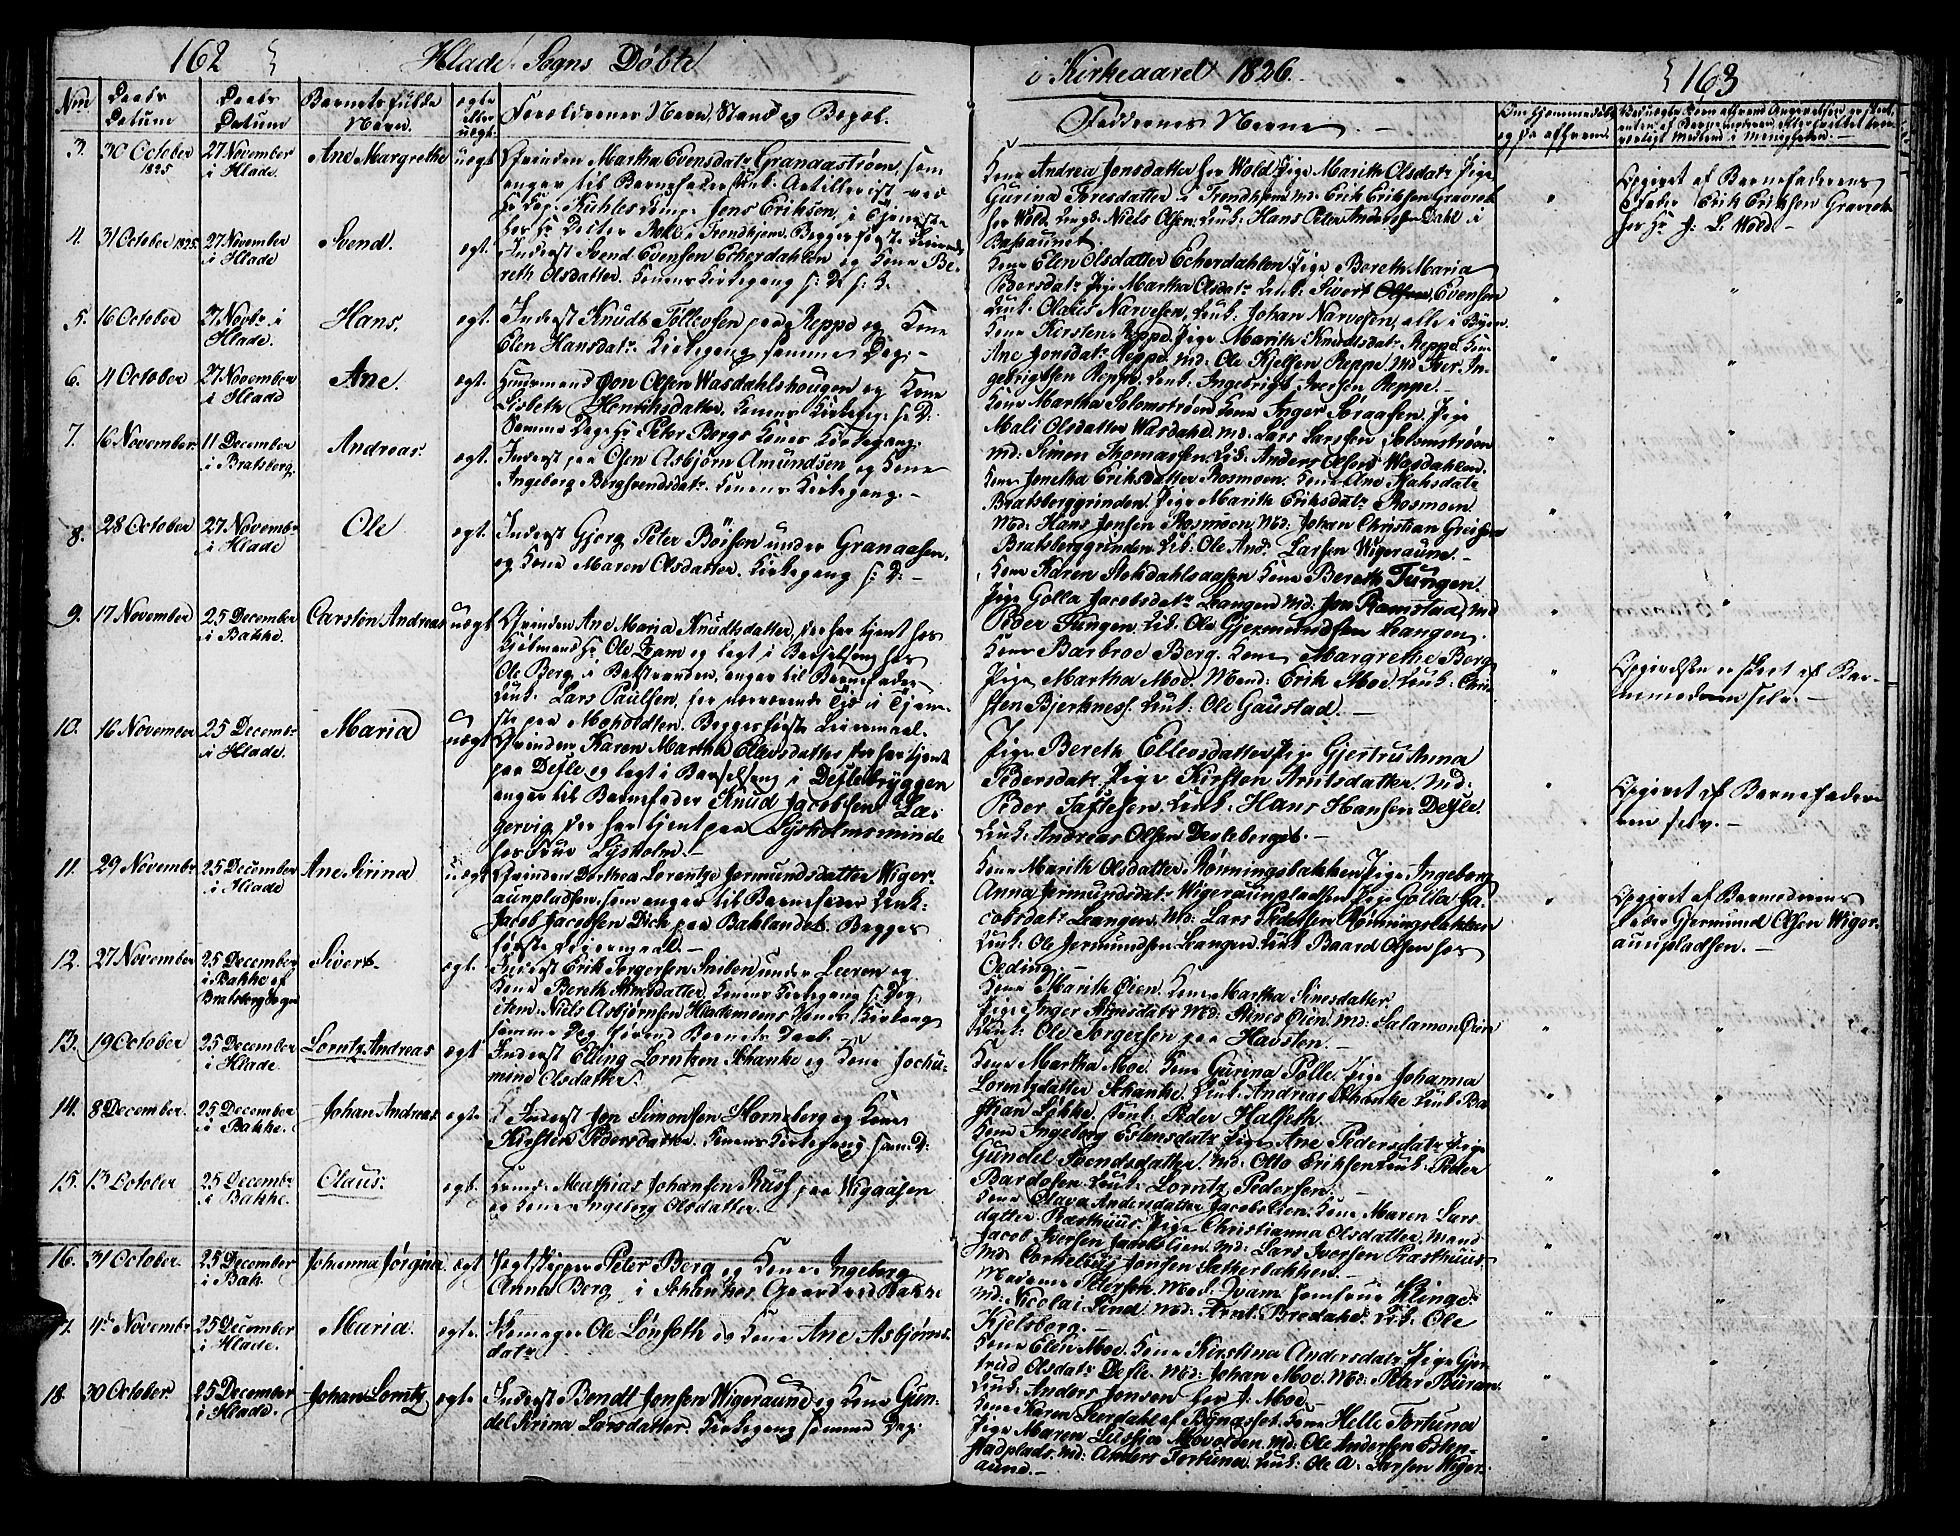 162
Hlade Sogns Døbte
i Kirkeaaret 1826.
163
Num.
Daabs
Datum
Barnets fulde
Navn.
ægte
eller
uægt.
Forældrenes Navn, Stand og Bopæl.
Faddernes Navne
3.
30 October
1825
27 November
i Hlade.
Ane Margrethe
uægt
Qvinden Martha Evensdatr Granaastrøen, som
angav til Barnefader Unk. Artillerist ved
Jens Eriksen, i Tjeneste
Kone Andrea Jonsdatter for Wold, Pige Marith Olsdatr Pige
Gurina Toresdatter i Trondhjem, Md: Erik Eriksen Graverek
for Wold, Ungk. Niels Olsen, Unk: Hans Peter Andersen Dahl i
Baksaunet.
Opgivet af Barnefaderens
Fader Erik Eriksen Gravrek
4.
31 October 1825
27 November
i Hlade
Svend.
ægt.
Inderst Svend Evensen Echerdahlen og Kone Be-
reth Olsdatter. Konens Kirkegang s: D:
Kone Elen Olsdatter Echerdahlen Pige Bereth Maria
Pedersdatr Pige Martha Olsdatr Unk: Sivert Evensen
Unk: Olaus Narvesen, Unk: Johan Narvesen, alle i Byen
5.
16 October
27 Novbr. i
Hlade.
Hans.
ægt.
Inderst Knudt Tollevsen paa Reppe og Kone
Elen Hansdatr. Kirkegang samme Dag.-
Kone Kirsten Reppe, Pige Marith Knudtsdatr Reppe, Kone
Ane Jonsdatr Reppe, Md: Ole Kjelsen Reppe, Md: Iver In-
gebrigtsen Reppe, Unk: Ingebrigt Iversen Reppe.-
6.
4 October
27 November
i Hlade
Ane.
ægt.
Huusmand Jon Olsen Wasdahlshougen og Kone
Lisbeth Henriksdatter. Konens Kirkeg: s: D:
Samme Dag Hr Peter Bergs Kones Kirkegang.
Kone Martha Solemstrøen, Kone Inger Sørgaasen, Pige
Mali Olsdatter Wasdahl, Md: Lars Larssen Solemstrøen
Md: Simon Thomassen, Uk: Anders Olsen Wasdahlen.
7.
16 November
11 December
i Bratsberg.
Andreas.
ægt.
Inderst paa Osen Asbjørn Amundsen og Kone
Ingeborg Bergsvendsdatr. Konens Kirkegang.-
Kone Jonetha Eriksdatter Rosmoen, Kone Ane
Bratsberggrinden, Pige Marith Eriksdatr Rosmoen
Md: Hans Jensen Rosmoen, Md: Johan Christian
Bratsberggrinden, Uk: Ole Andr. Larsen Wigeraune.-
8.
28 October
27 Novembr
i Hlade
Ole
ægt.
Inderst Gjorg Peter Böisen under Granaasen,
og Kone Maren Olsdatter. Kirkegang s: D:-
Kone Karen Stokdahlsaasen, Kone Bereth Tungen.
Pige Golla Jacobsdatr Leangen, Md: Jon Ramstad, Md:
Peder Tungen, Uk: Ole Gjermundsen Leangen.
9.
17 November
25 December
i Bakke.
Carsten Andreas
uægt
Qvinden Ane Maria Knudtsdatter, der har tjent hos
Ole Lam og lagt i Barselseng hos
Ole Berg, i Bakstranden, angav til Barnefader
Unk. Lars Paulsen, for nærværende Tid i Tjene-
ste paa Moholdten. Begges første Leiermaal.
Kone Barbroe Berg. Kone Margrethe Berg
Pige Martha Moe, Mand: Erik Moe, Unk: Chri-
sten Bjerknes, Unk: Ole Gaustad.-
Opgivelsen er skeet af Bar-
nemoderen selv.-
10.
16 November
25 Decembr
i Hlade.
Maria
uægt
Qvinden Karen Martha Ellevsdatter der har tjent
paa Defle og lagt i Barselseng i Deflebryggen
angav til Barnefader Knud Jacobsen La-
gervig, der har tjent paa Lysholmsminde
hos Frue Lysholm.-
Pige Bereth Ellevsdatter Pige Gjertru Anna
Pedersdatr Pige Kirsten Arntsdatter, Md:
Peder Taftesen, Unk: Hans Hansen Defle.
Unk: Andreas Olsen Defleberget.-
Opgivet af Barnefade-
ren selv.-
11.
29 November
25 December
i Hlade
Ane Sirina
uægt
Qvinden Dorthea Lorentze Jermundsdatter Wiger-
aunpladsen, som angav til Barnefader Unk:
Jacob Jacobsen Dick paa Baklandet. Begges
første Leiermaal.-
Kone Marith Olsdatter Rønningsbakken Pige Ingeborg
Anna Jermundsdatr Wigeraunpladsen, Pige Golla Ja-
cobsdatr Leangen, Md: Lars Pedersen Rønningsbakken
Unk: Ole Jermundsen Leangen, Unk Baard Olsen hos
Oeding.-
Opgivet af Barnemoderens
Fader Gjermund Olsen Wiger-
aunpladsen.-
12.
27 November
25 December
i Bakke af
Bratsberg Sogn
Sivert.
ægt.
Inderst Erik Torgersen under Leeren og
Kone Bereth Arntsdatter. Konens Kirkegang s: Dag
item Niels Asbjørnsen Hlademoens Kones Kirkegang
samme Dag
Kone Marith Øien, Kone Martha Simesdatter
Pige Inger Simesdatr Md: Simes Øien, Md: Salamon Øien
Unk: Ole Torgersen paa Havsten.
13.
19 October
25 December
i Hlade
Lorntz Andreas
ægt
Inderst Elling Lorntzen Schanke og Kone Jochu-
mine Olsdatter.
Kone Martha Moe, Kone Gurina Polle, Pige Johanna
Lorentzdatter Schanke, Unk: Andreas Schanke, Unk: Ba-
stian Løkke, Unk: Peder Halseth.
14.
8 December.
25 December
i Bakke.
Johan Andreas
ægte
Inderst Jon Simonsen Hornsberg og Kone
Kirsten Pedersdatter. Konens Kirkegang sam: D:
Kone Ingeborg Estensdatr Pige Ane Pedersdatr Pige
Gundel Svendsdatter, Md: Otto Eriksen, Unk: Peder
Bardosen, Unk: Lorntz Pedersen.
15.
13 October
25 Decembr
i Bakke.
Claus.
ægt.
Mathias Johansen Russ paa Wigaasen
og Kone Ingeborg Olsdatter.
Kone Olava Andersdatter Jacobslien, Kone Maren Lars-
datter Presthuus, Pige Christianna Olsdatter, Mand
Jacob Iversen Jacobslien, Md: Lars Iversen Presthuus.
Md: Cornelius Jonsen Sætherbakken.-
16.
31 October.
25 December
i Bak.
Johanna Jørgina
ægt
Jægtskipper Peter Berg og Kone Ingeborg
Anna Berg, i Schankes Gaard ved Bakke
Madame Petersen, Mad. Qvam, Jomfrue Klinge.
Md: Nicolai Lind, Md: Arnt Bredahl, Uk: Ole
Kjelsberg.-
17.
4de Novembr
25 December
i Hlade.
Maria.
ægte.
Skomager Ole Lönseth og Kone Ane Asbjørns-
datr
Kone Elen Moe, Kone Kirstina Andersdatr Pige Gjer-
trud Olsdatr Defle, Md: Johan Moe, Md: Peter Buran.
Unk: Anders Jonsen for J. Moe.-
18.
30 October.
25 December
i Hlade.
Johan Lorntz
ægte.
Inderst Bendt Jonsen Wigeraune og Kone Gun-
del Sirina Larsdatter. Kirkegang samme Dag.
Kone Karen af Bynæsset, Kone Helle Fortuna
Pige Maren Silsia Moeorden, Md: Ole Andersen Esten-
stadplads, Md: Anders Fortuna, Unk: Ole A. Larsen Wiger-
aune.-